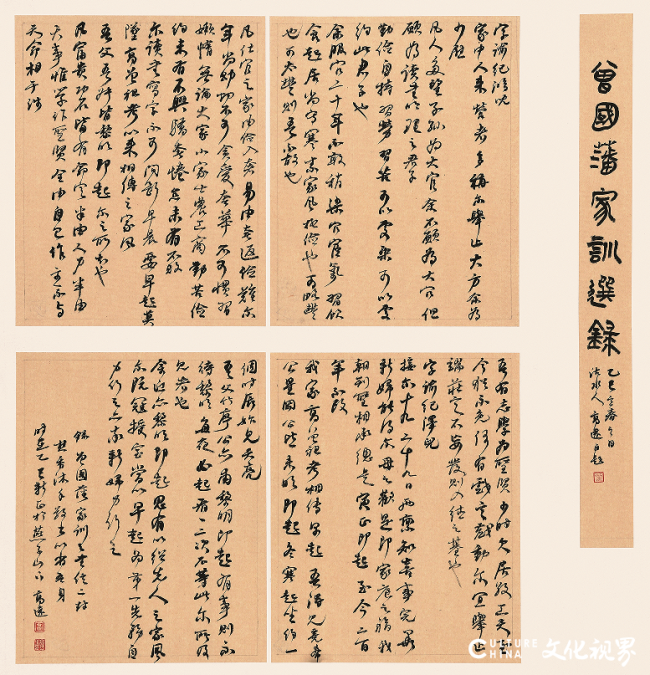 曾國藩家訓選錄
字諭紀鴻兒
家中人來營者多稱爾舉止大方余為
少慰
凡人多望子孫為大官余不願為大官但
願為讀書明理之君子
勤儉自持習勞習苦可以處樂可以處
約此君子也
余服官二十年不敢稍染官宦氣習飲
食起居尚守寒素家風極儉也可略豐
也可太豐則吾不敢也
凡仕宦之家由儉入奢易由奢返儉難爾
年尚幼切不可貪愛奢華不可慣習
懶惰無論大家小家士農工商勤苦儉
約未有不興驕奢倦怠未有不敗
爾讀書寫字不可間斷早晨要早起莫
墜高曾祖考以來相傳之家風
吾父吾叔皆黎明即起爾之所知也
凡富貴功名皆有命定半由人力半由
天事惟學作聖賢全由自己作主不與
天命相干涉
吾有志學為聖賢少時欠居敬工夫至
今猶不免偶有戲言戲動爾宜舉止
端莊言不妄發則入德之基也
字諭紀澤兒
接爾十九二十九日兩稟知喜事完畢
新婦能得爾母之歡是即家庭之福我
朝列聖相承總是寅正即起至今二百
年不改
我家高曾祖考相傳早起吾得見竟希
公星岡公皆未明即起冬寒起坐約一
個時辰始見天亮
吾父竹亭公亦甫黎明即起有事則不
待黎明每夜必起看一二次不等此爾所及
見者也
余近亦黎明即起思有以紹先人之家風
爾既冠授室當以早起為第一先務自
力行之亦率新婦力行之
錄曾國藩家訓二封
焚香沐手敬書以
時在乙巳新正於燕子山下高遠
CULTURE CHINA 文化视界